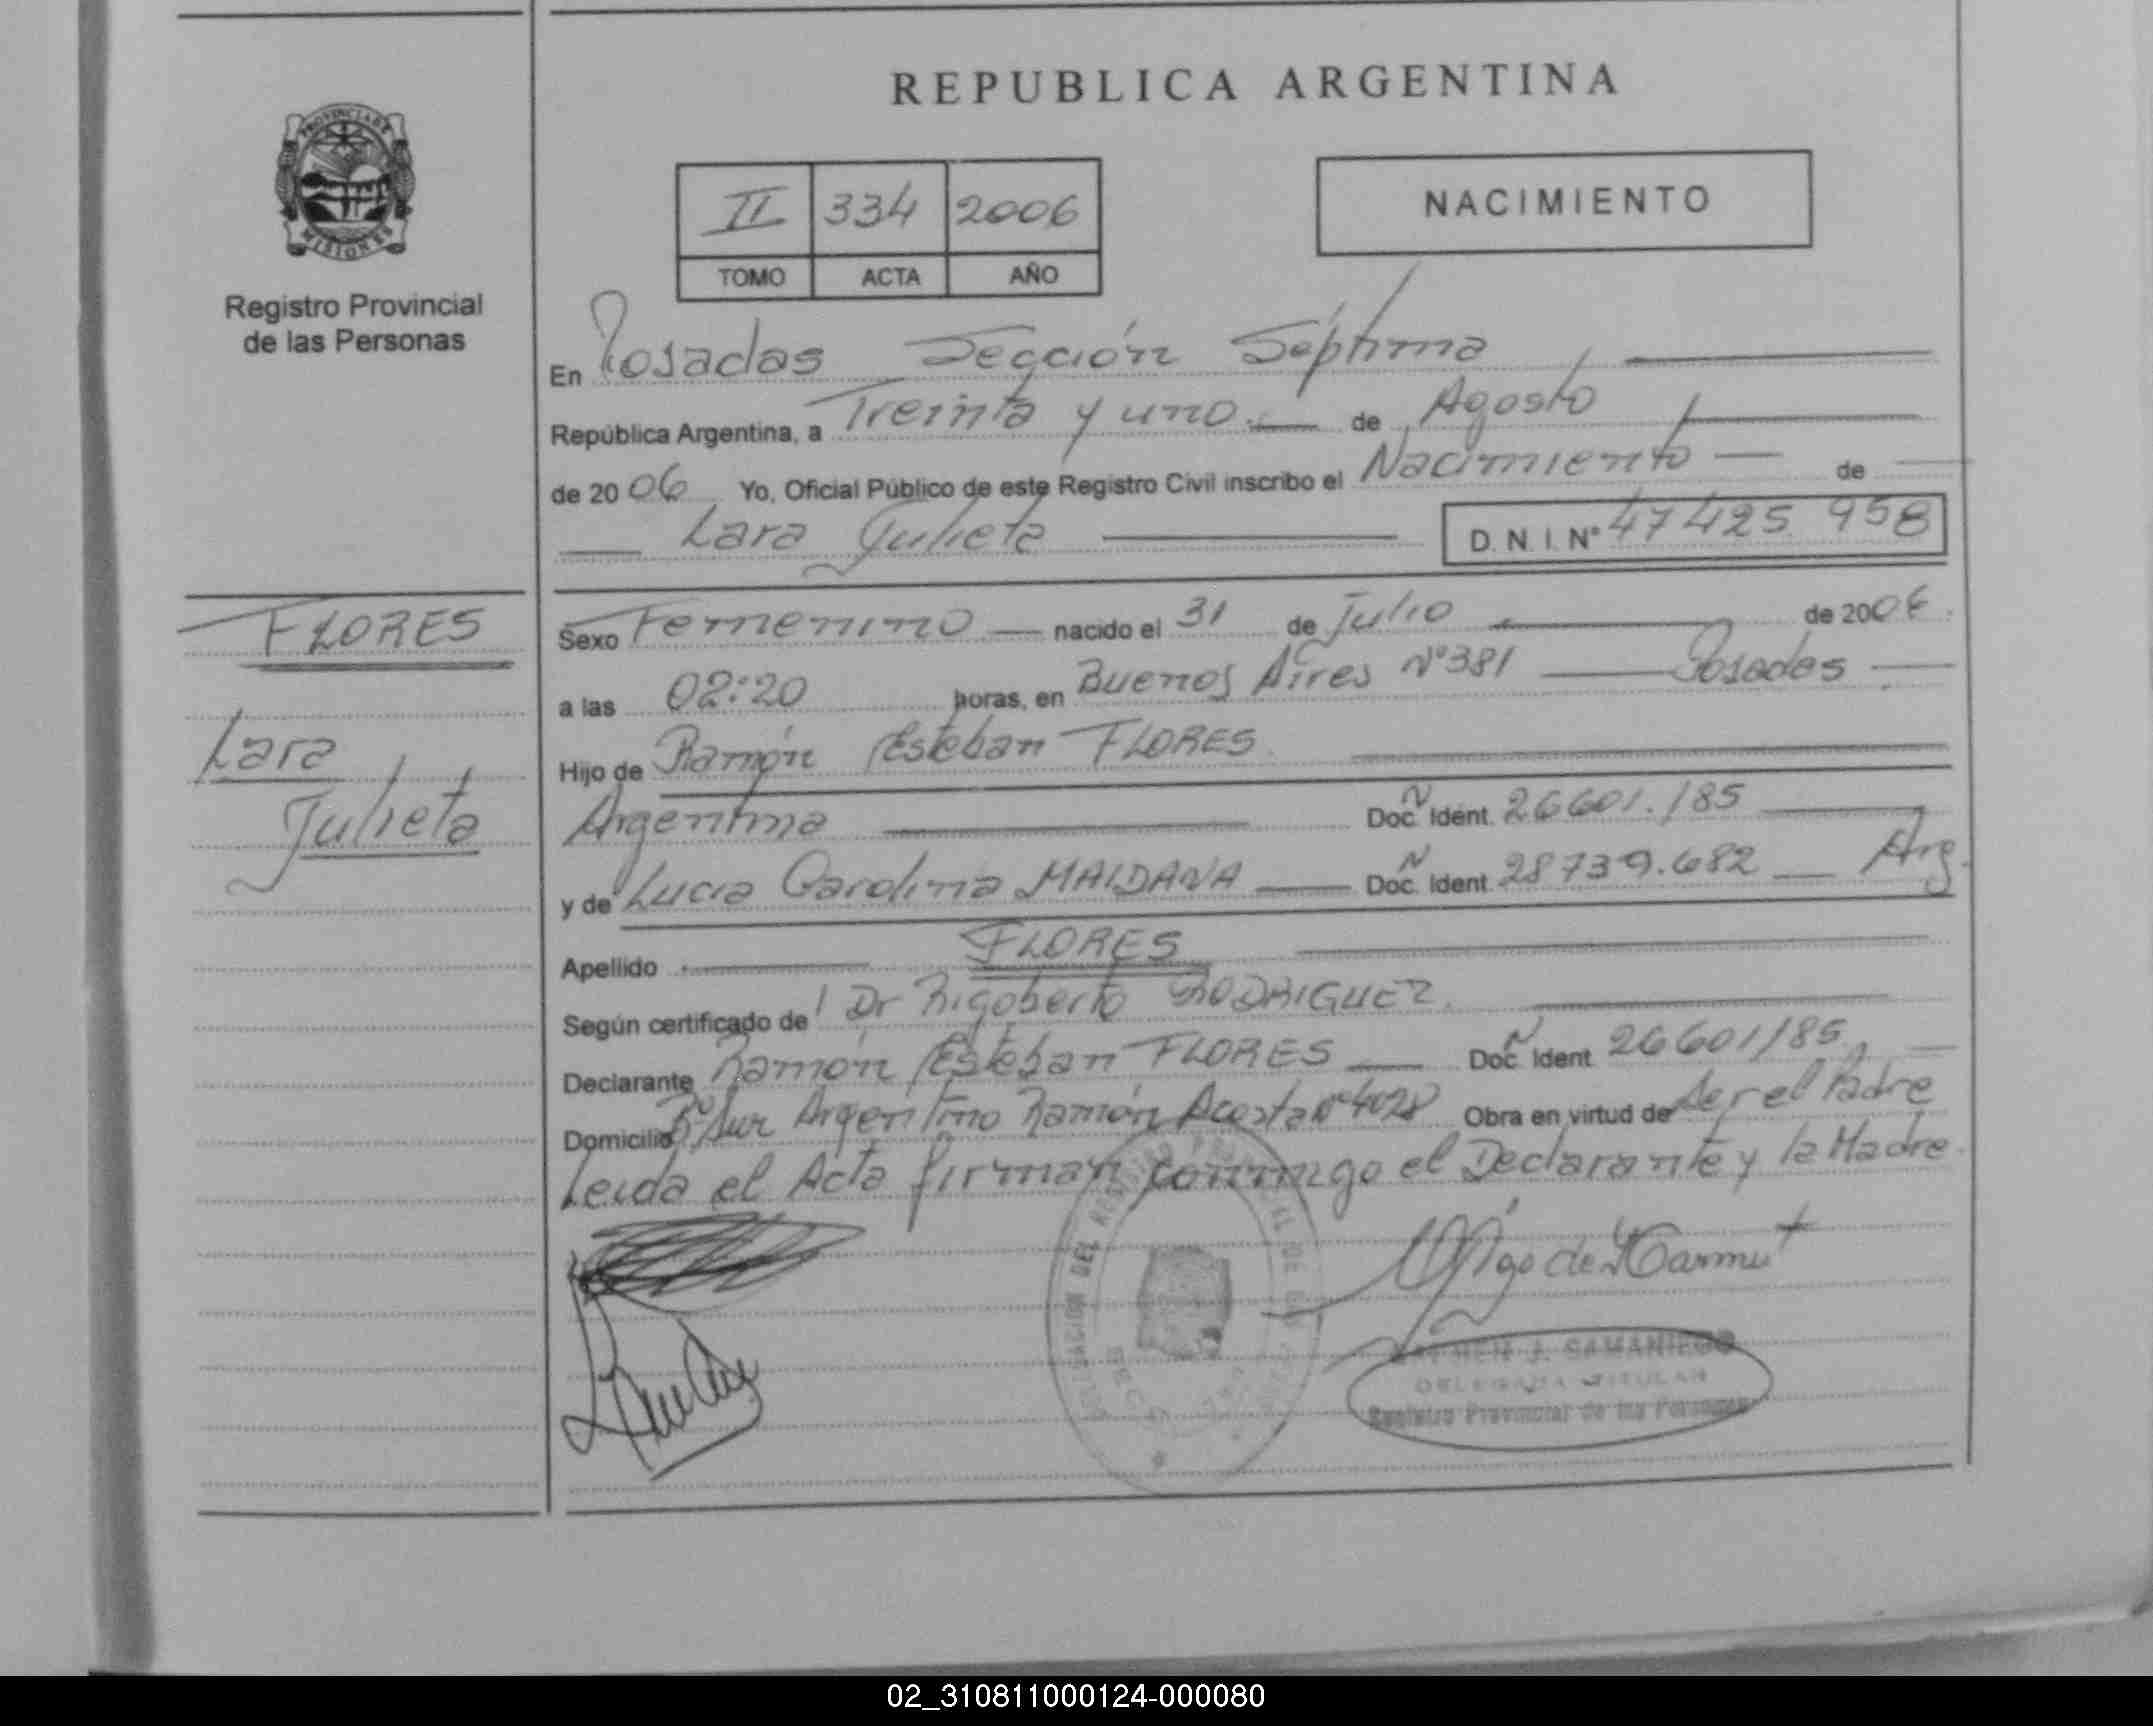 REPUBLICA ARGENTINA
PROVINCIA DE
MISIONES
Registro Provincial
de las Personas
II 334 2006
TOMO ACTA AÑO
NACIMIENTO
En Posadas Sección Séptima
República Argentina, a Treinta y uno de Agosto
de 2006 Yo, Oficial Público de este Registro Civil inscribo el Nacimiento de
Lara Julieta D.N.I. Nº 47425 958
FLORES
Lara
Julieta
Sexo Femenino nacido el 31 de Julio de 2006
a las 02:20 horas, en Buenos Aires Nº 381 Posadas
Hijo de Ramón Esteban FLORES
Argentina Doc. Ident. 26601.185
y de Lucia Carolina MAIDANA Doc. Ident. 28739.682 Arg.
Apellido FLORES
Según certificado de Dr Rigoberto RODRIGUEZ.
Declarante Ramón Esteban FLORES Doc. Ident. 26601185
Domicilio Bº Sur Argentino Ramón Acosta Nº 4028 Obra en virtud de Ser el Padre
Leida el Acta firman conmigo el Declarante y la Madre.
DEL REGISTRO PROVINCIAL DE LAS
CARMEN J. SAMANIEGO
DELEGADA TITULAR
Registro Provincial de las Personas
02_310811000124-000080